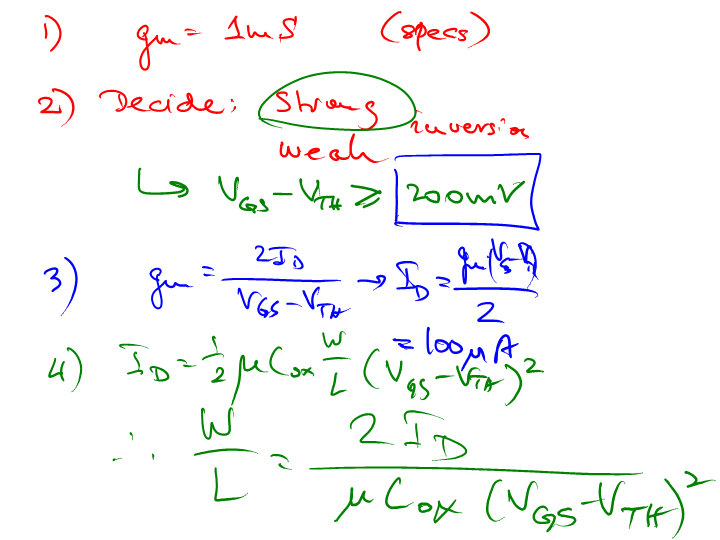 1) gm = 1mS (specs)
2) Decide: Strong
weak inversion
↳ V_GS - V_TH ≥ 200mV
3) gm = 2I_D / (V_GS - V_TH) → I_D = gm (V_GS - V_T) / 2
= 100μA
4) I_D = 1/2 μ Cox W/L (V_GS - V_TH)^2
∴ W/L = 2 I_D / (μ Cox (V_GS - V_TH)^2)